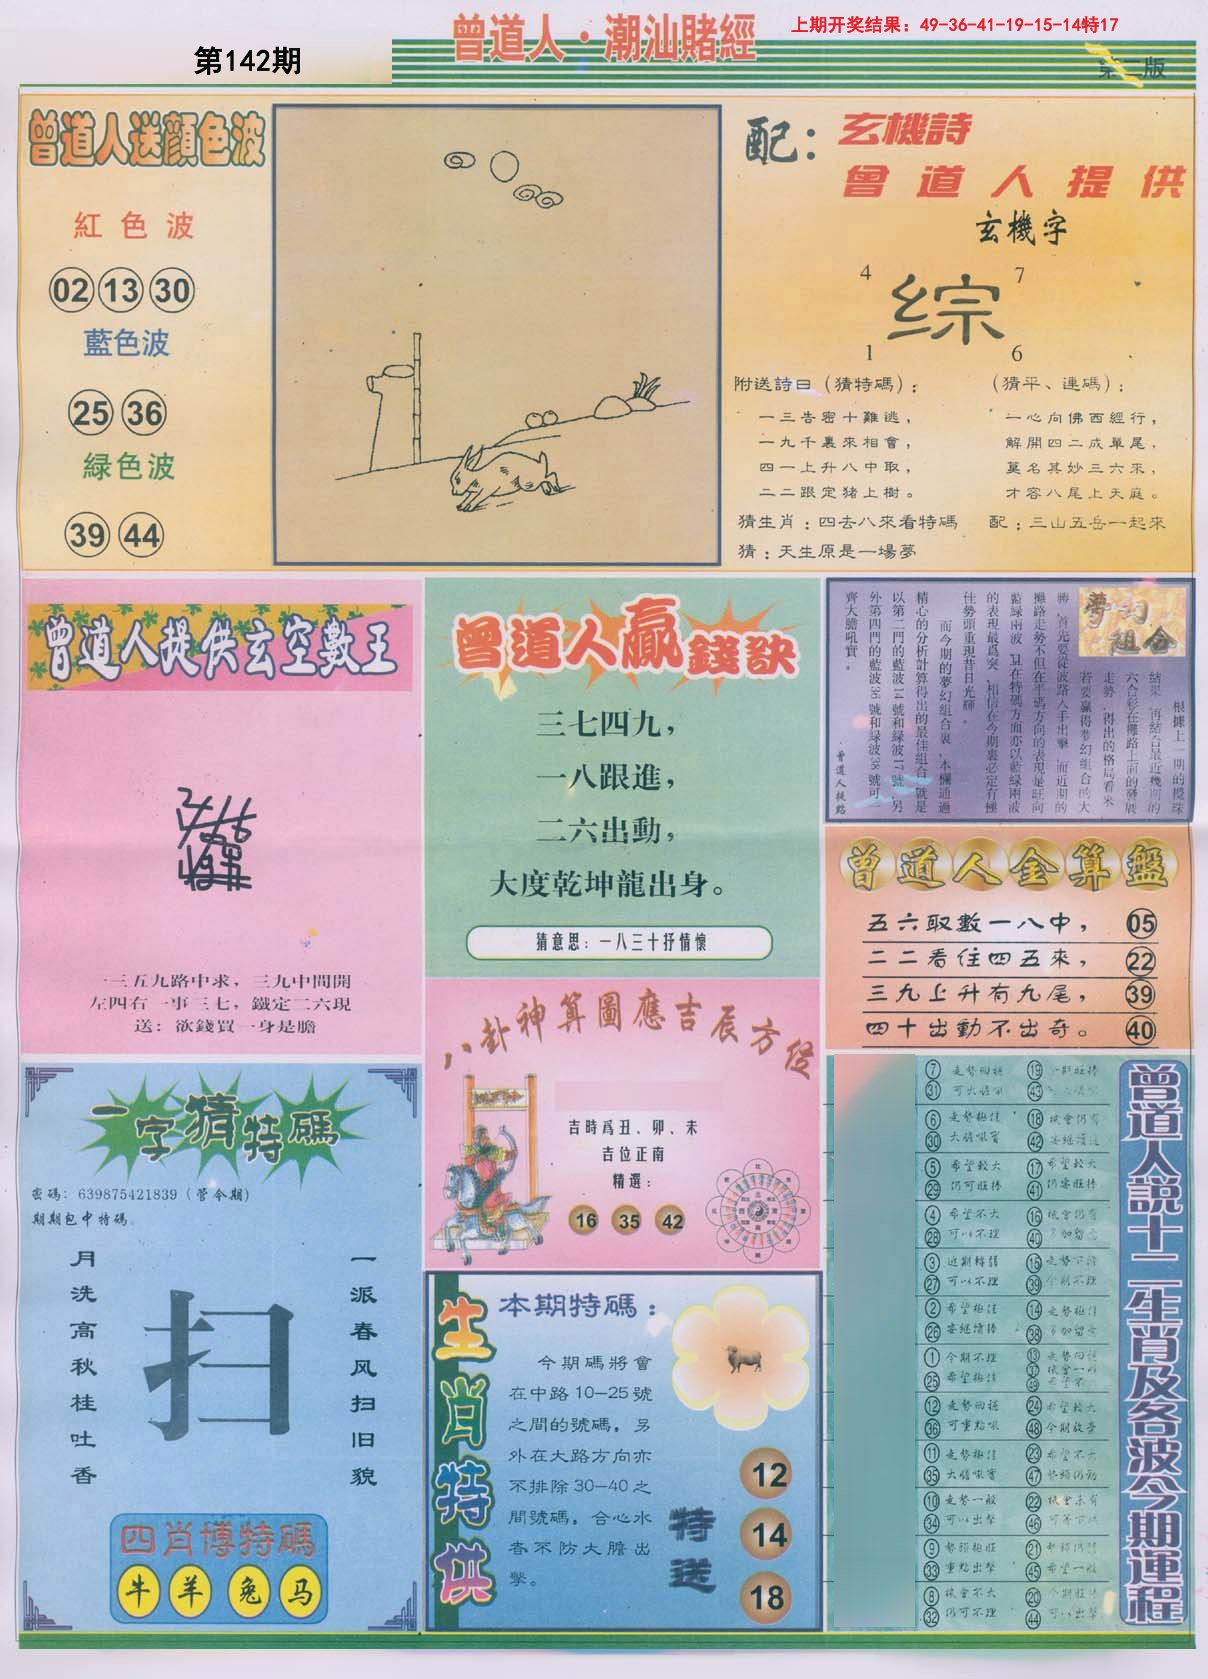 第142期
曾道人·潮汕賭經
上期开奖结果：49-36-41-19-15-14特17
第二版
曾道人送顔色波
紅色波
02 13 30
藍色波
25 36
緑色波
39 44
配：玄機詩
曾道人提供
玄機字
4 7
综
1 6
附送詩曰（猜特碼）：
一三告密十難逃，
一九千裏來相會，
四一上升八中取，
二二跟定猪上樹。
（猜平、連碼）：
一心向佛西經行，
解開四二成單尾，
莫名其妙三六來，
才容八尾上天庭。
猜生肖：四去八來看特碼
配：三山五岳一起來
猜：天生原是一場夢
曾道人提供玄空數王
一三五九路中求，三九中間開
左四右一事三七，鐵定二六現
送：欲錢買一身是膽
曾道人贏錢訣
三七四九，
一八跟進，
二六出動，
大度乾坤龍出身。
猜意思：一八三十抒情懷
夢幻組合
根據上一期的攪珠
結果，再結合最近幾期的
六合彩在攤路上面的發展
走勢，得出的格局看來，
若要贏得夢幻組合的大
勝，首先要從波路入手出擊，而近期的
攤路走勢不但在平碼方向的表現是旺向
藍緑兩波，且在特碼方面亦以藍緑兩波
的表現最爲突，相信在今期裏必定有極
佳勢頭重現昔日光輝。
而今期的夢幻組合裏，本欄通過
精心的分析計算得出的最佳組合就是
以第二門的藍波14號和緑波17號，另
外第四門的藍波36號和緑波38號可一
齊大膽吼實。
曾道人提路
曾道人金算盤
五六取數一八中， 05
二二看住四五來， 22
三九上升有九尾， 39
四十出動不出奇。 40
八卦神算圖應吉辰方位
吉時爲丑、卯、未
吉位正南
精選：
16 35 42
一字猜特碼
密碼：639875421839（管今期）
期期包中特碼
月洗高秋桂吐香
扫
一派春风扫旧貌
四肖博特碼
牛 羊 兔 马
生肖特供
本期特碼：
今期碼將會
在中路10—25號
之間的號碼，另
外在大路方向亦
不排除30—40之
間號碼，合心水
者不防大膽出
擊。
特送
12
14
18
曾道人説十二生肖及各波今期運程
7 走勢回穩 19 今期旺捧
31 可出 43
6 走勢極佳 18 機會仍有
30 大膽吼實 42
5 希望較大 17 希望較大
29 仍可旺捧 41 仍要旺捧
4 希望不大 16 機會仍有
28 可以不理 40 多加留意
3 近期轉弱 15 走勢下滑
27 可以不理 39 今期不理
2 希望極佳 14 走勢極佳
26 要繼續捧 38 多加留意
1 今期不理 13 走勢回穩
37 機會一般
25 希望極佳 49
12 走勢回穩 24 希望較大
36 可重點吼 48 今期放棄
11 走勢極佳 23 希望不大
35 大膽吼實 47
10 走勢一般 22 機會未有
34 可以出擊 46
9 勢頭極旺 21
33 重點出擊 45 希望一般
8 機會不大 20 今期旺捧
32 仍可不理 44 可以出擊